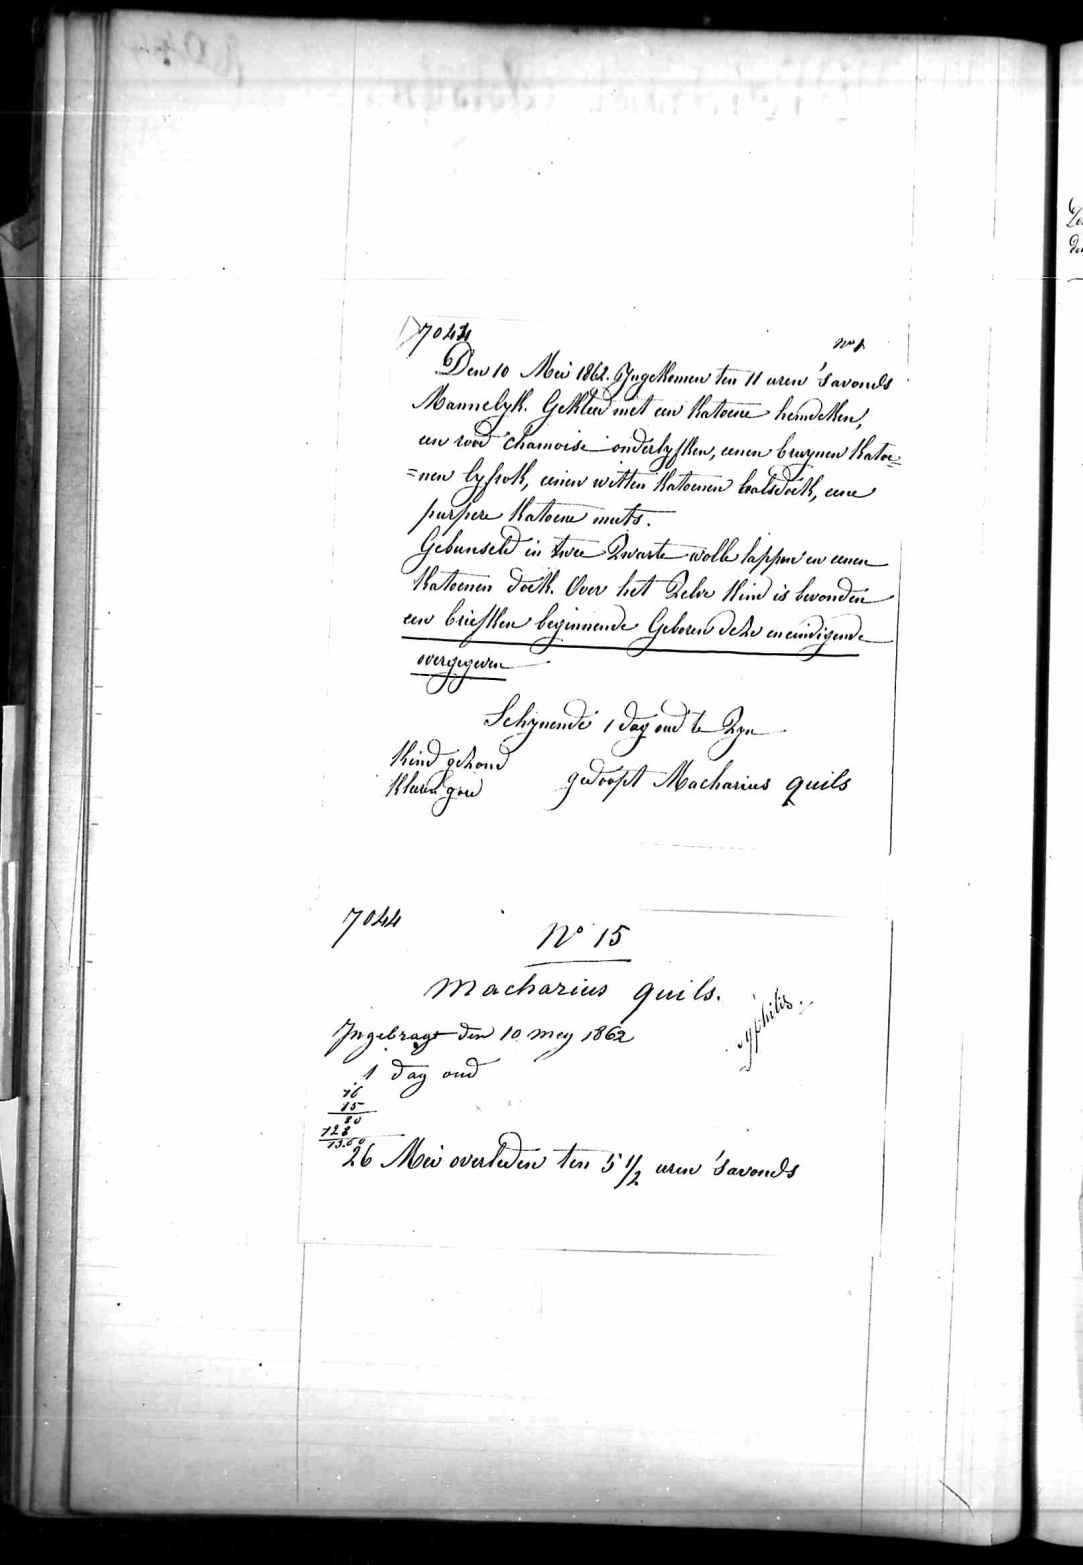 7044
Den 10 Mei 1862. Ingekomen ten 11 uren 's avonds
Mannelyk. Gekleed met een katoene hemdeken,
een rood chamoise onderlyfken, eenen bruynen katoe=
=nen lyfrok, eenen witten katoenen halsdoek, eene
purpere katoene muts.
Gebunseld in twee zwarte wolle lappen en eenen
katoenen doek. Over het zelve kind is bevonden
een briefken beginnende Geboren deze en eindigende
overgegeven
Schynende 1 dag oud te zyn
Kind gezond
Kleed. goed
gedoopt Macharius Quils
7044
N° 15
Macharius Quils.
syphilis.
Ingebragt den 10 mey 1862
1 dag oud
16
15
80
128
13.60
26 Mei overleden ten 5 1/2 uren 's avonds